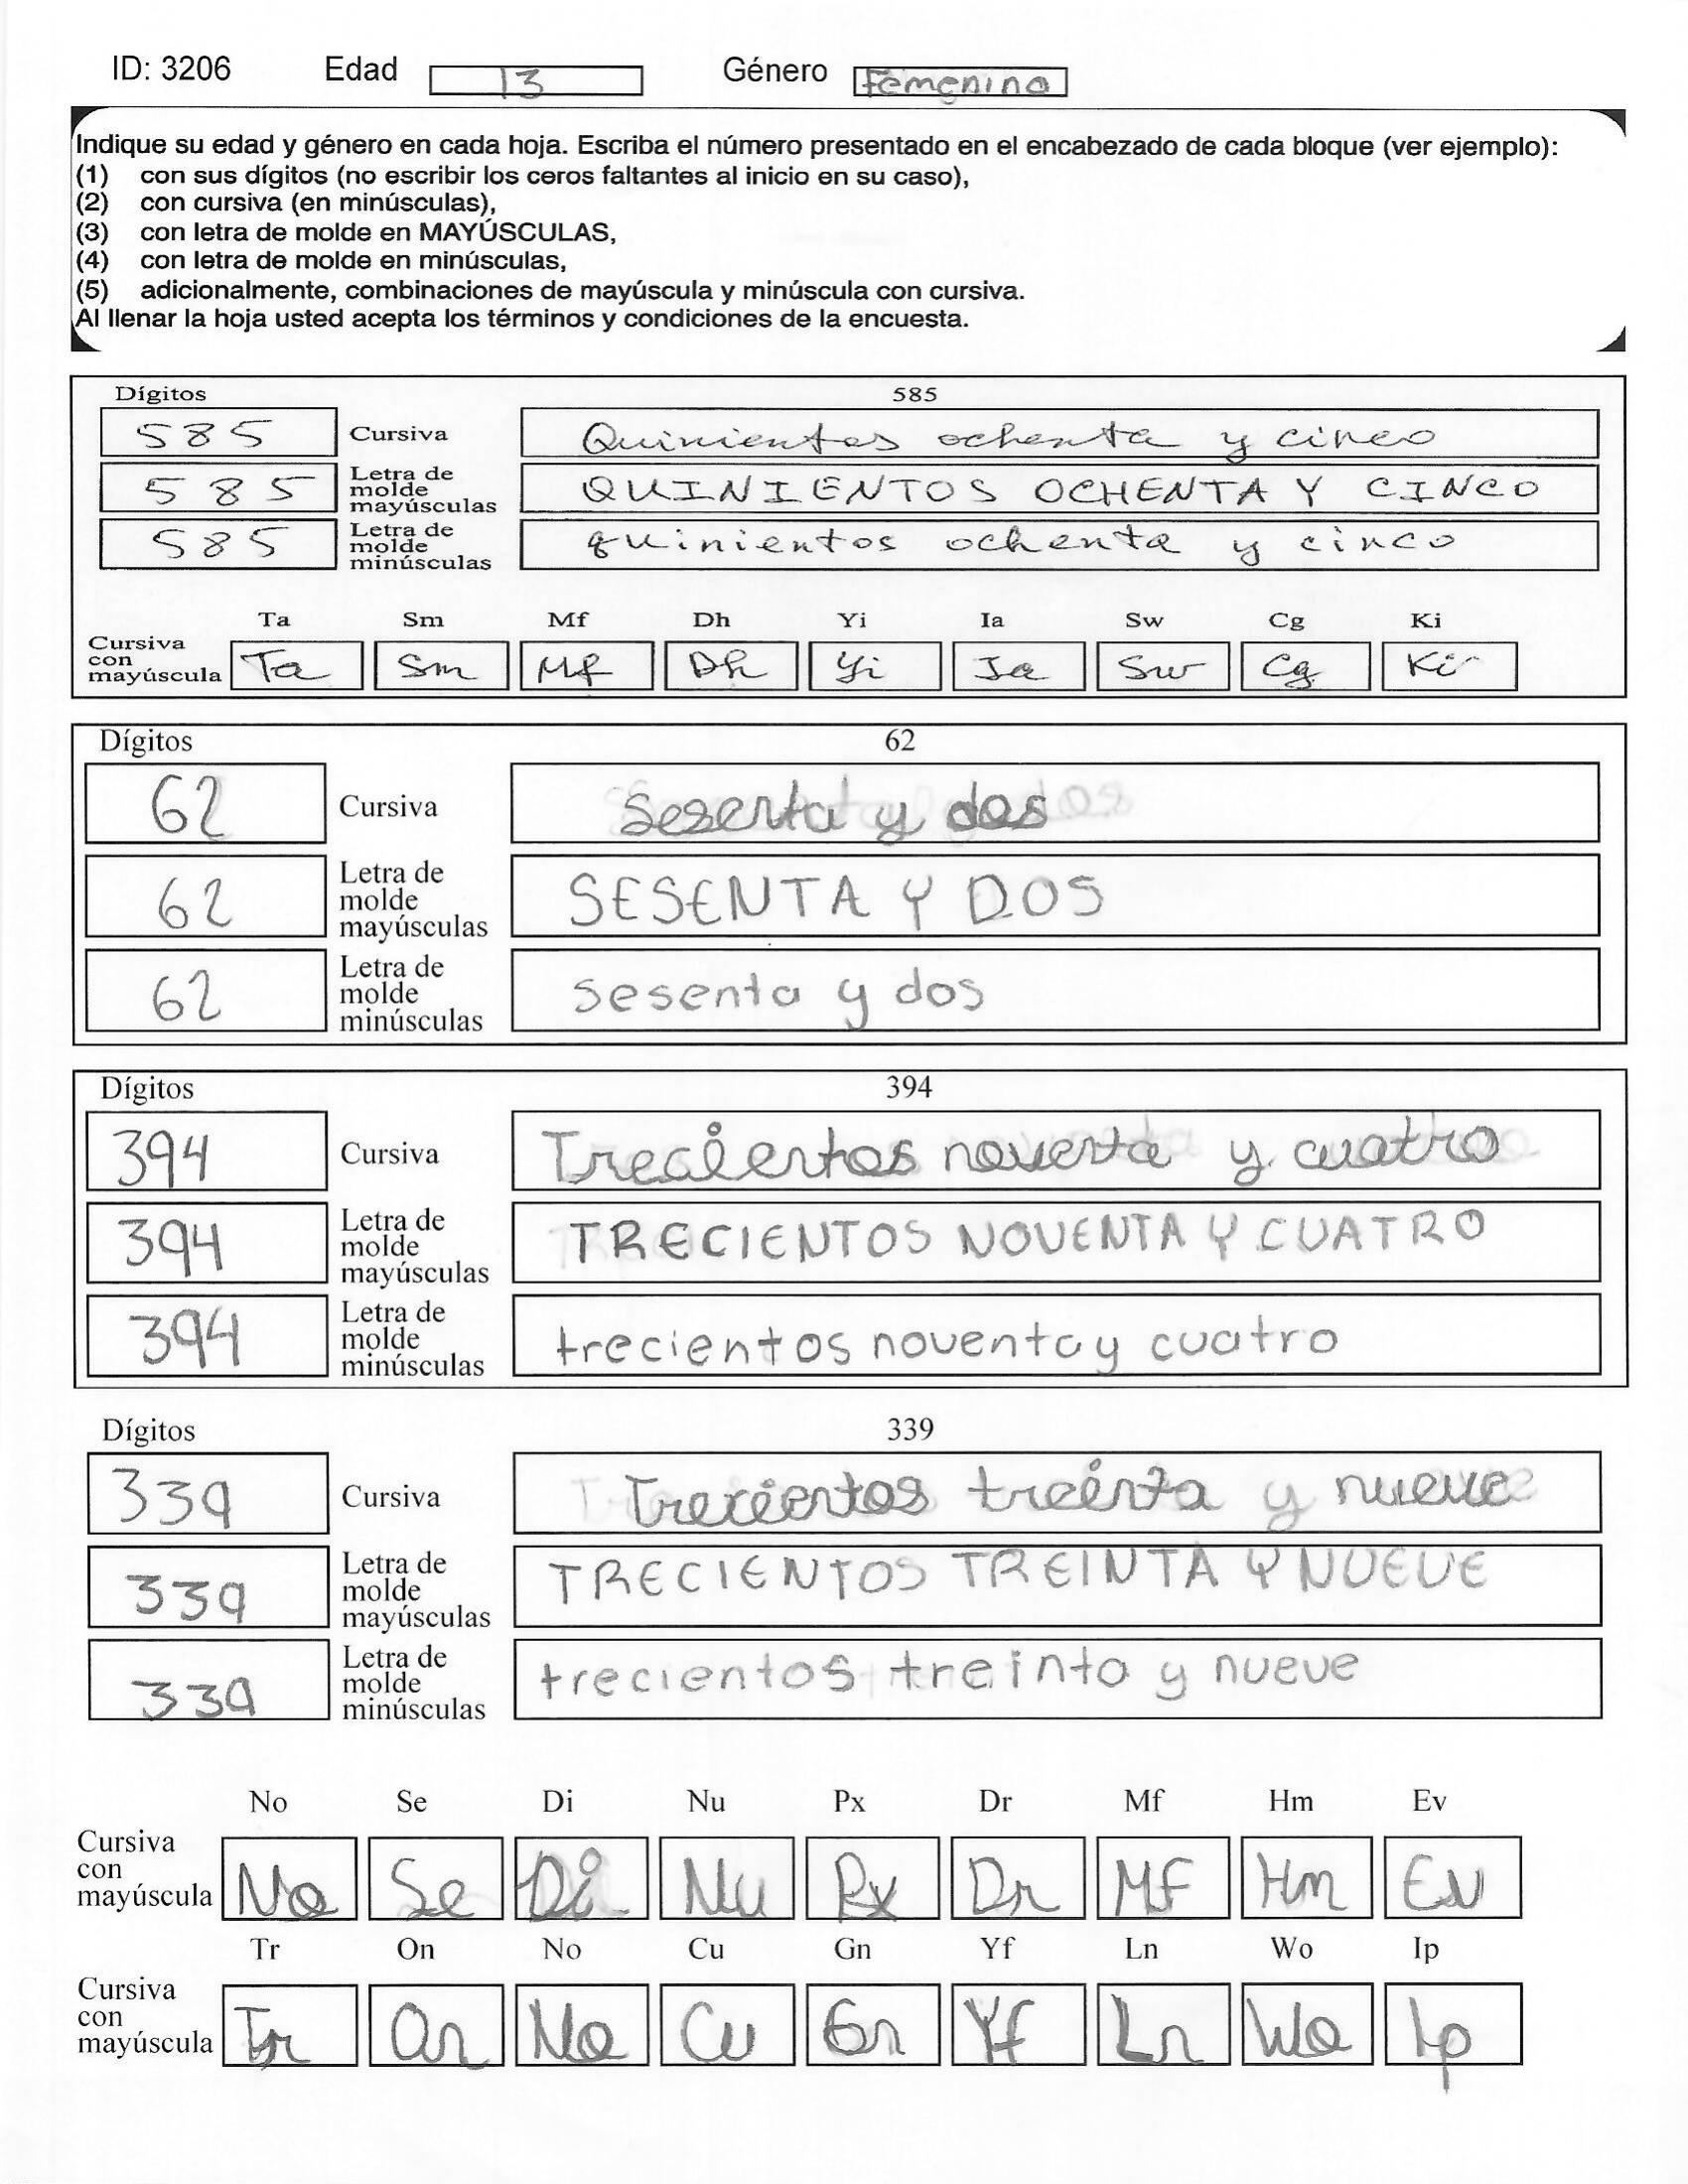 ID: 3206 Edad 13 Género Femenino
Indique su edad y género en cada hoja. Escriba el número presentado en el encabezado de cada bloque (ver ejemplo):
(1) con sus dígitos (no escribir los ceros faltantes al inicio en su caso),
(2) con cursiva (en minúsculas),
(3) con letra de molde en MAYÚSCULAS,
(4) con letra de molde en minúsculas,
(5) adicionalmente, combinaciones de mayúscula y minúscula con cursiva.
Al llenar la hoja usted acepta los términos y condiciones de la encuesta.
Dígitos 585
585 Cursiva Quinientos ochenta y cinco
585 Letra de molde mayúsculas QUINIENTOS OCHENTA Y CINCO
585 Letra de molde minúsculas quinientos ochenta y cinco
Ta Sm Mf Dh Yi Ia Sw Cg Ki
Cursiva con mayúscula Ta Sm Mf Dh Yi Ia Sw Cg Ki
Dígitos 62
62 Cursiva Sesenta y dos
62 Letra de molde mayúsculas SESENTA Y DOS
62 Letra de molde minúsculas sesenta y dos
Dígitos 394
394 Cursiva Trecientos noventa y cuatro
394 Letra de molde mayúsculas TRECIENTOS NOVENTA Y CUATRO
394 Letra de molde minúsculas trecientos noventa y cuatro
Dígitos 339
339 Cursiva Trecientos treinta y nueve
339 Letra de molde mayúsculas TRECIENTOS TREINTA Y NUEVE
339 Letra de molde minúsculas trecientos treinta y nueve
No Se Di Nu Px Dr Mf Hm Ev
Cursiva con mayúscula No Se Di Nu Px Dr MF Hm Ev
Tr On No Cu Gn Yf Ln Wo Ip
Cursiva con mayúscula Tr On No Cu Gn Yf Ln Wo Ip